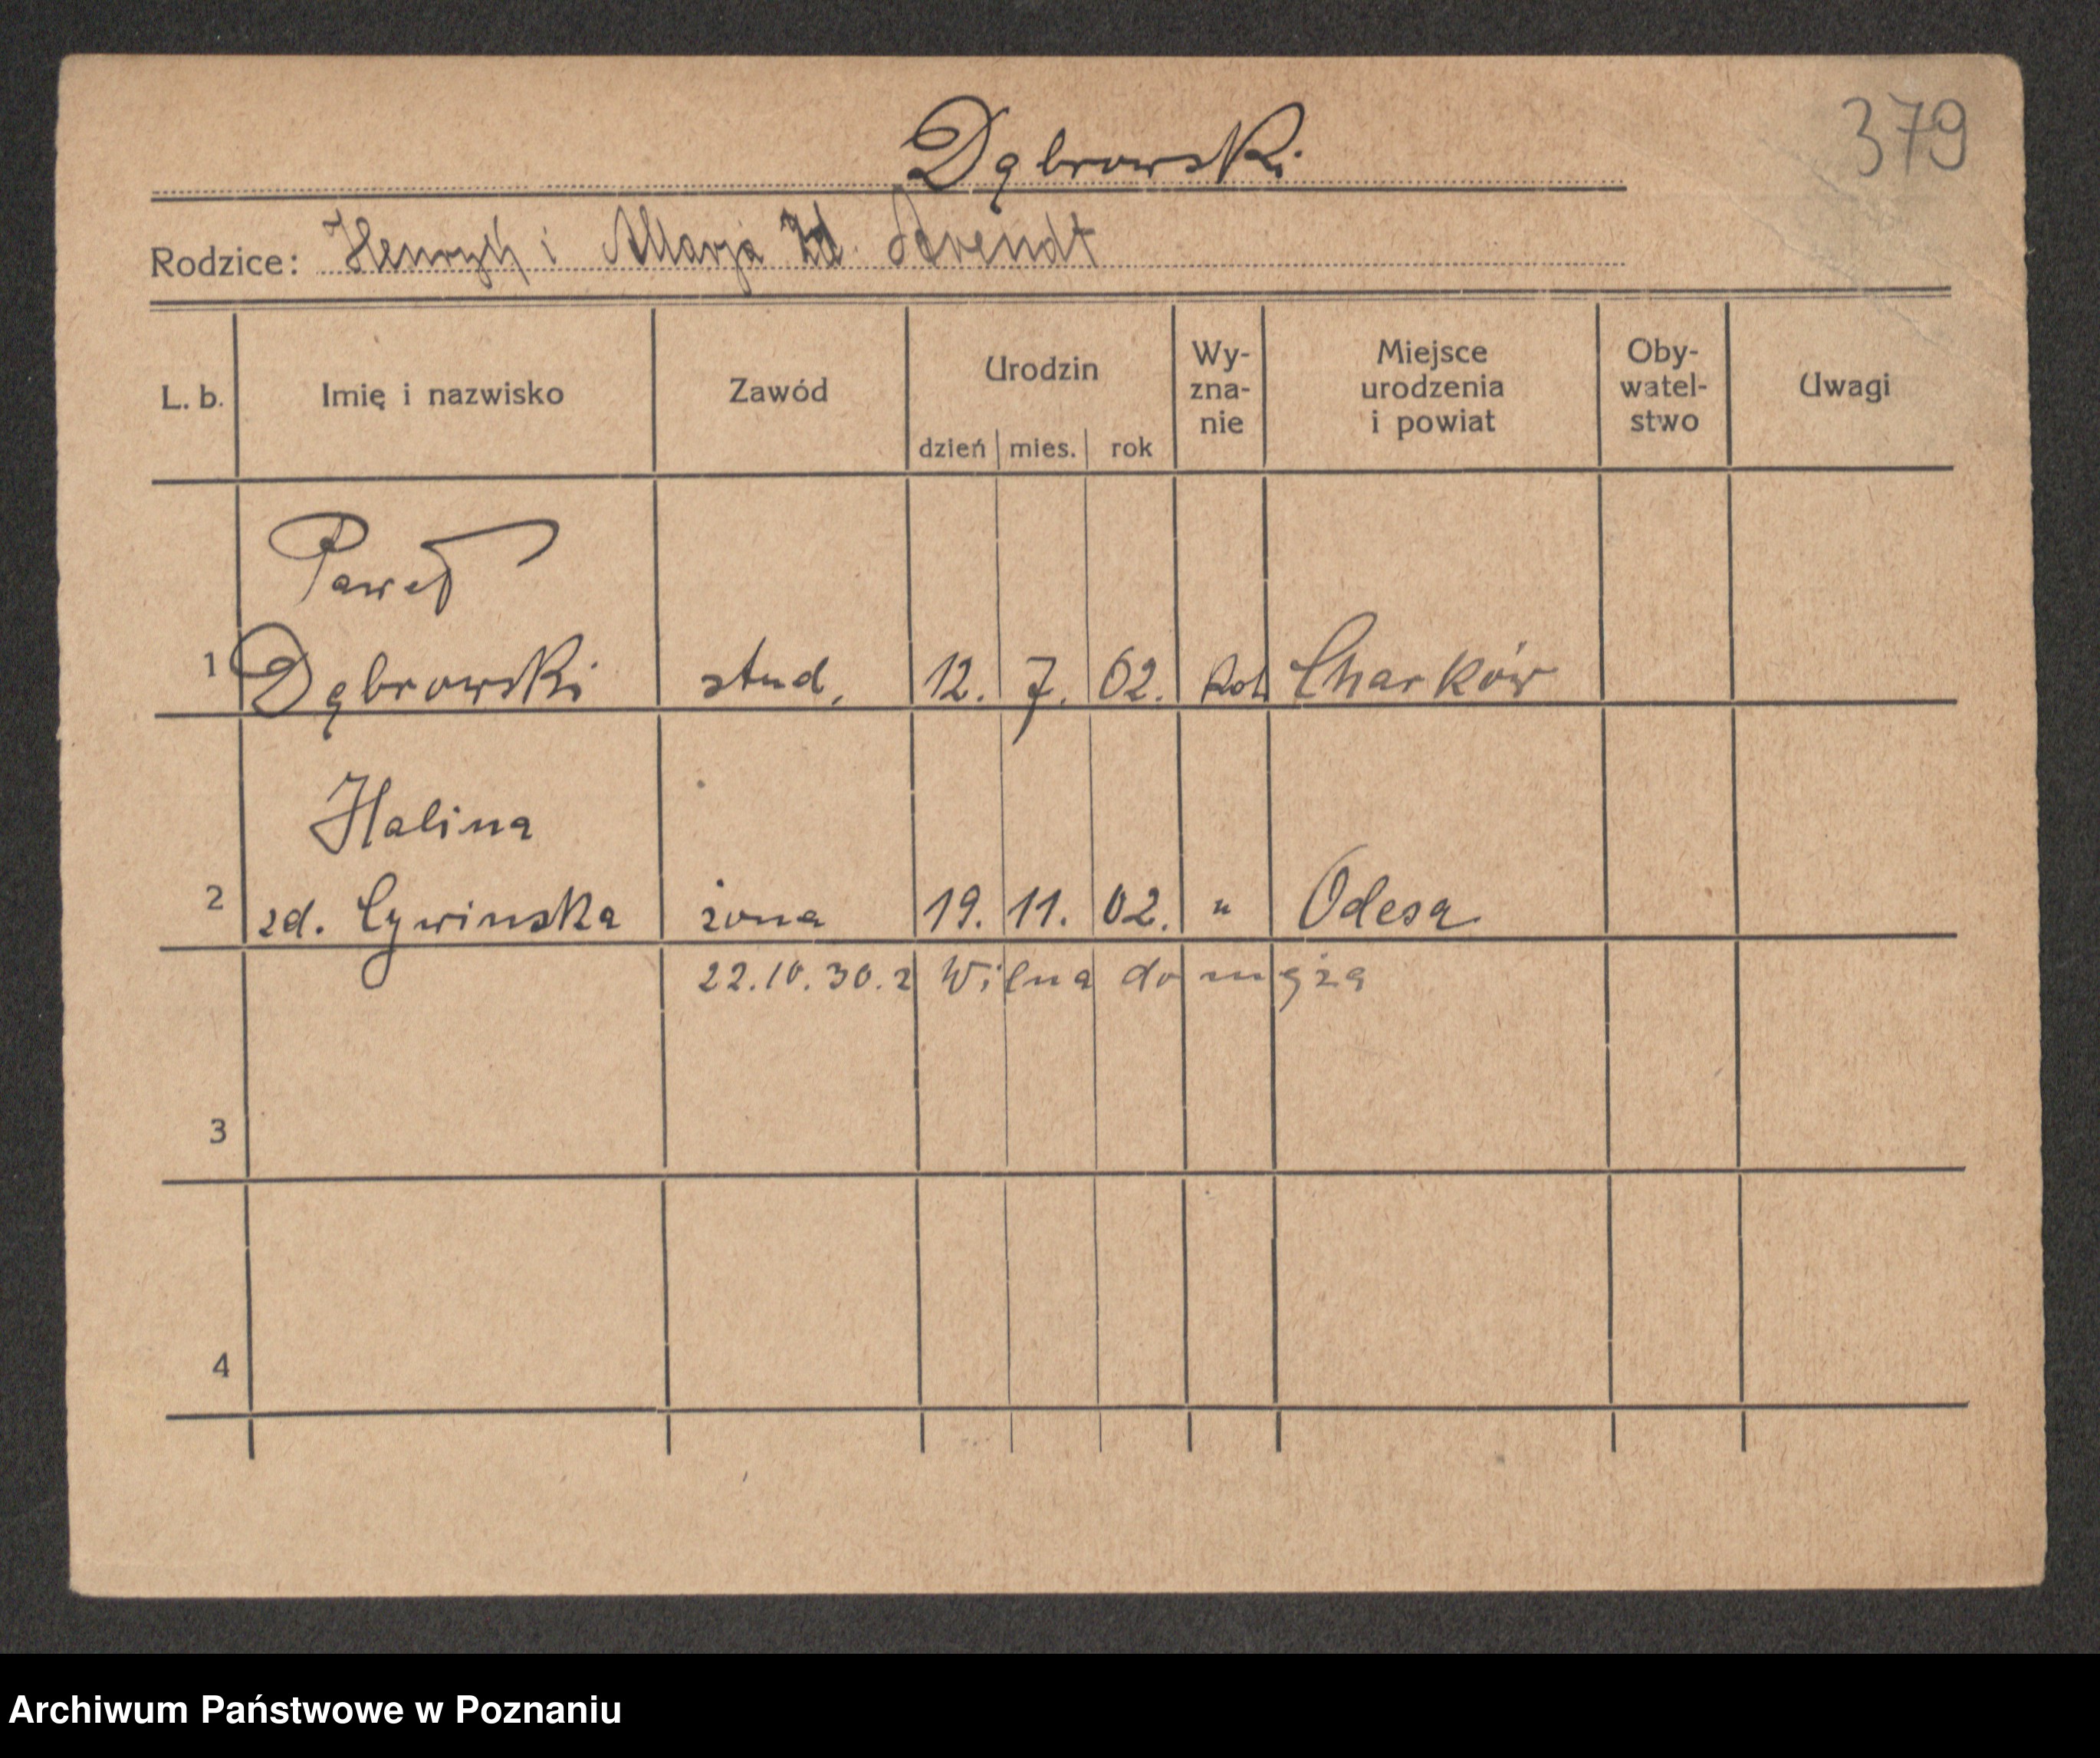 379
Dąbrowski
Rodzice: Henryk i Marja zd. Arendt
L. b. Imię i nazwisko Zawód Urodzin dzień mies. rok Wy-zna-nie Miejsce urodzenia i powiat Oby-watel-stwo Uwagi
Paweł
1 Dąbrowski stud. 12. 7. 02. kat Charków
Halina
2 zd. Cywinska żona 19. 11. 02. " Odesa
22.10.30. z Wilna do męża
3
4
Archiwum Państwowe w Poznaniu